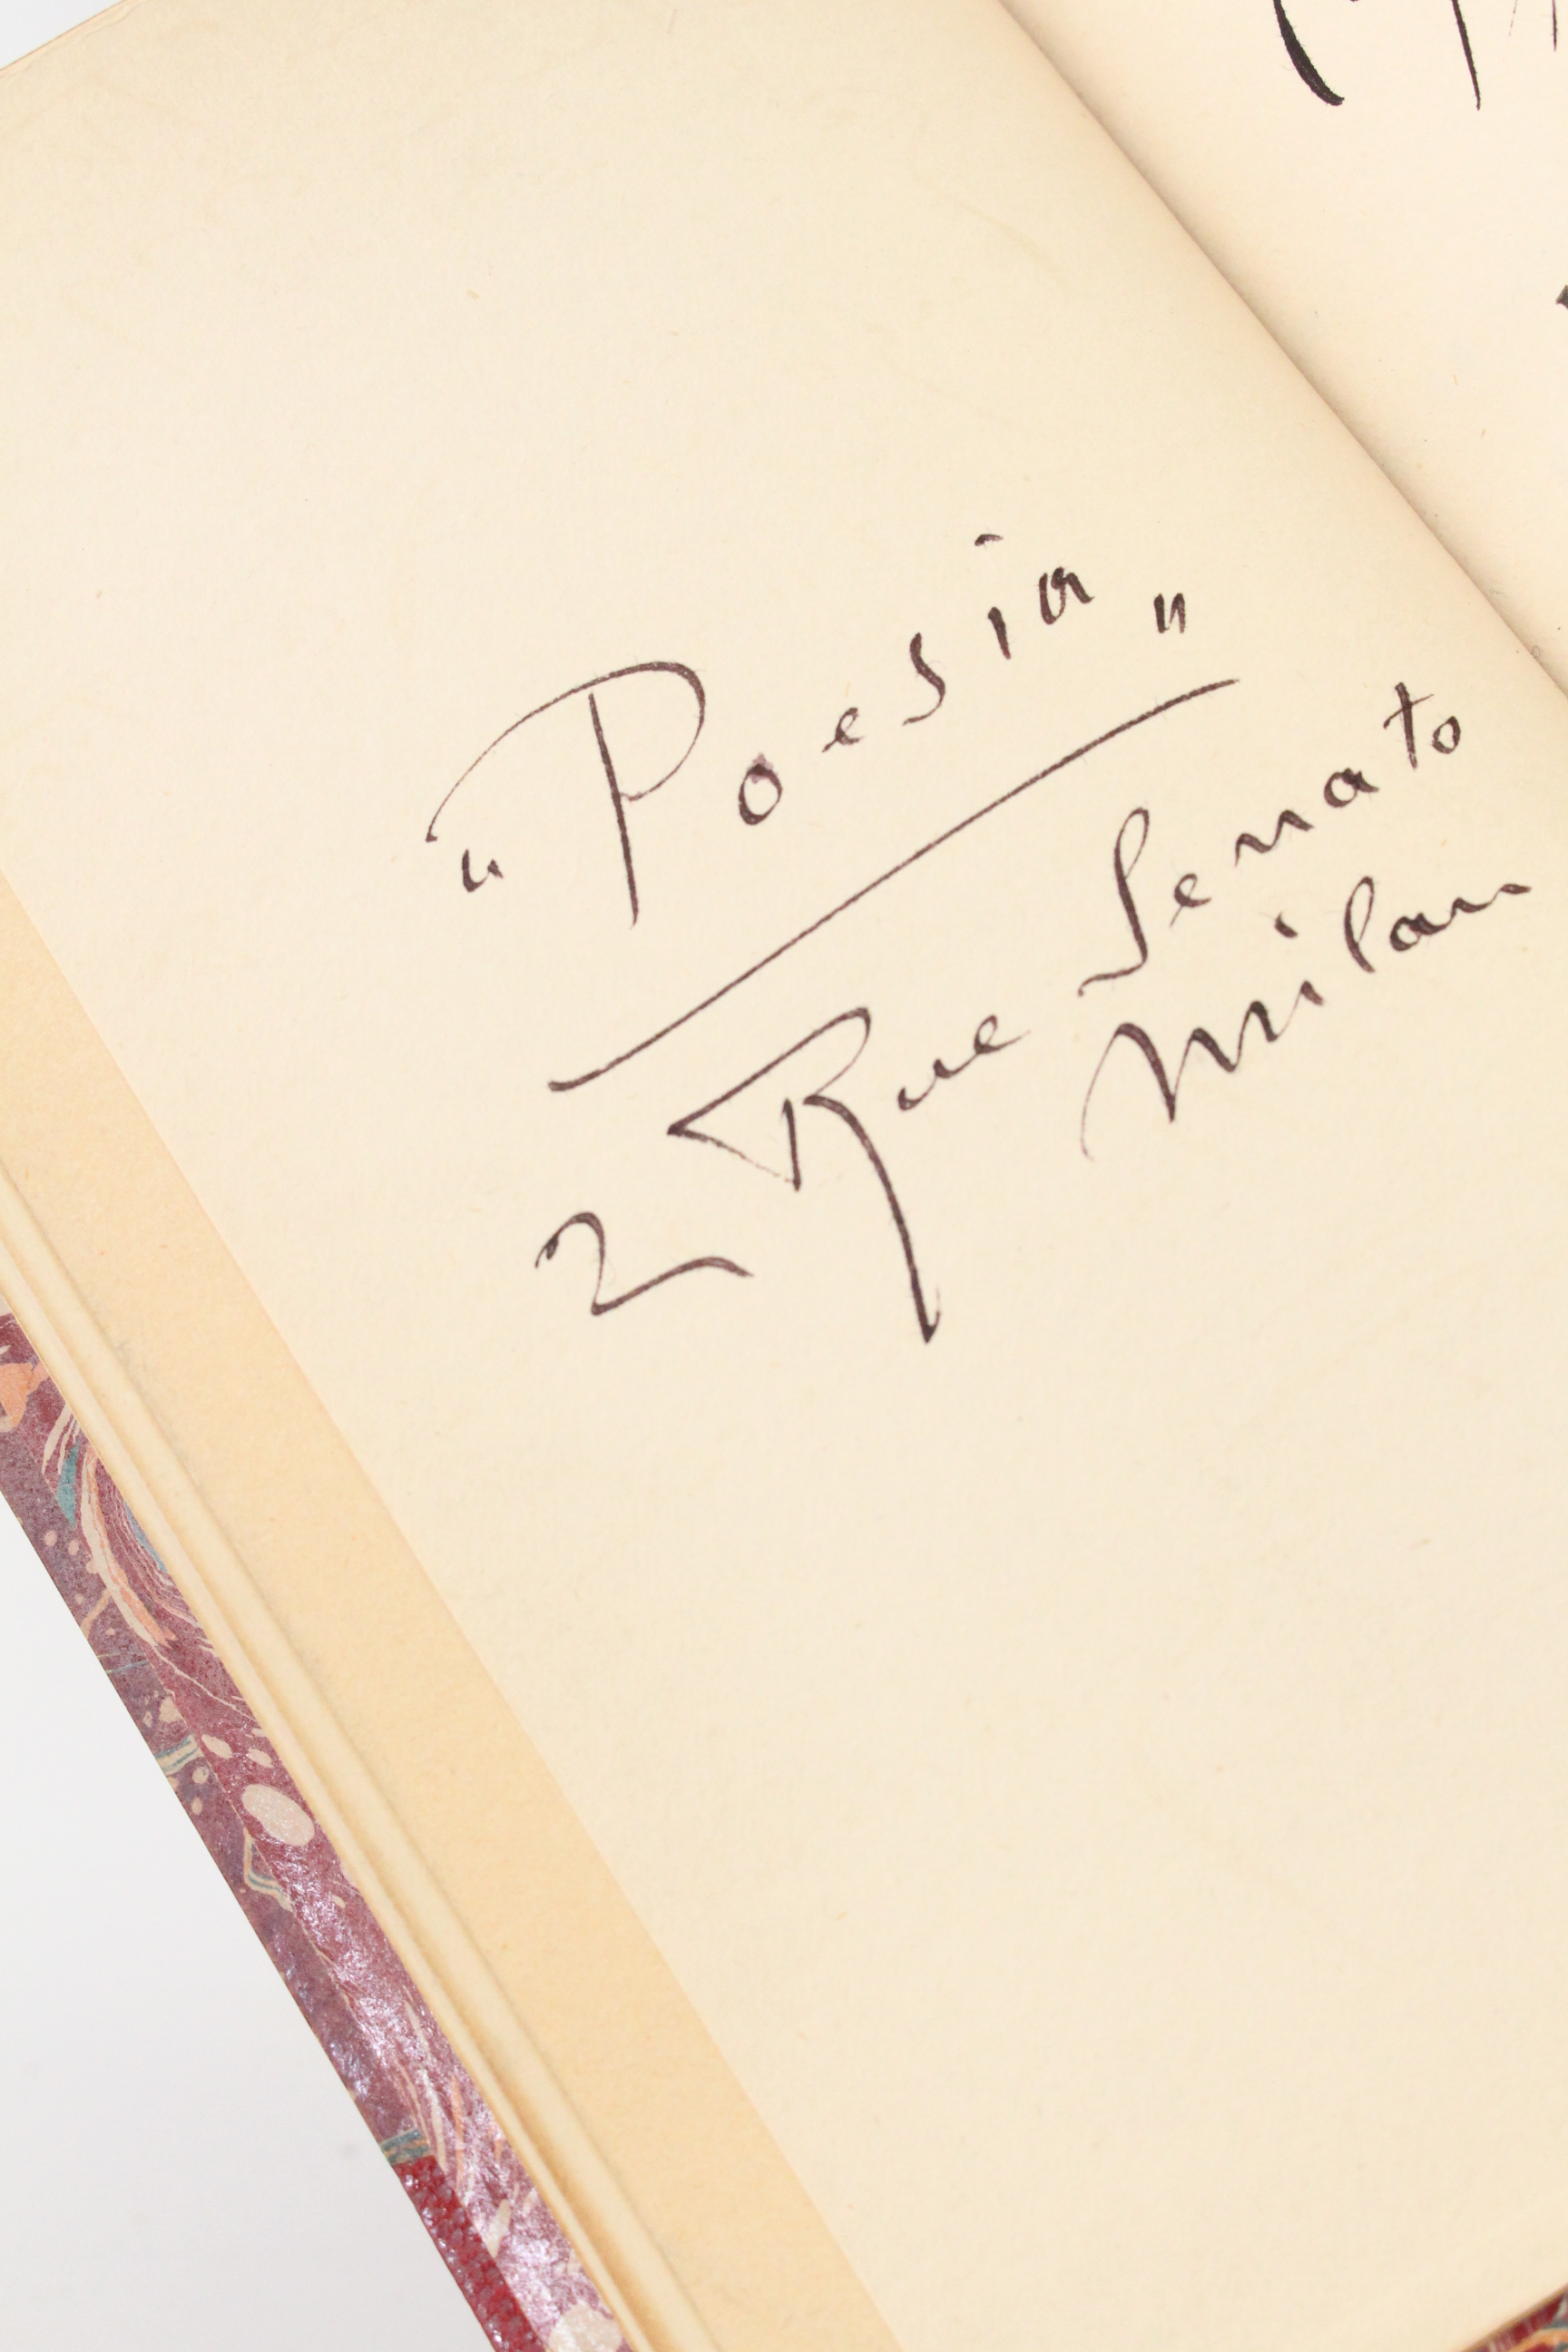 "Poesia"
2 Rue Senato
Milan